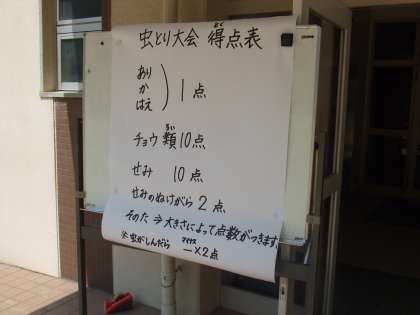 虫とり大会 得点表
とく
あり
か
はえ
) 1点
るい
チョウ類 10点
せみ 10点
せみのぬけがら 2点
そのた ⇒ 大きさによって点数がつきます
マイナス
※ 虫がしんだら ー×2点